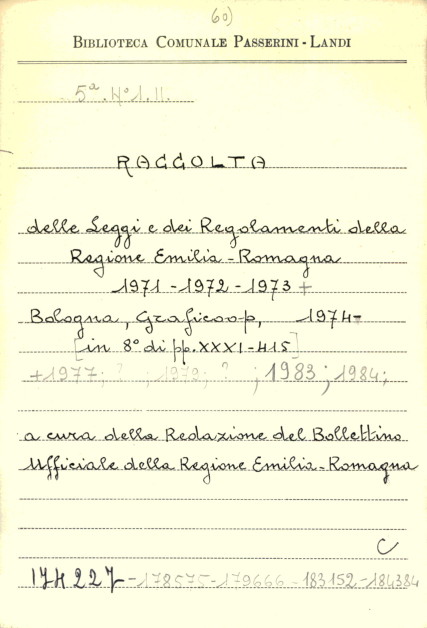 60)
BIBLIOTECA COMUNALE PASSERINI - LANDI
5ª. Hº 1. 11.
RAGGOLTA
delle Leggi e dei Regolamenti della
Regione Emilia - Romagna
1971 - 1972 - 1973 +
Bologna, Graficoop, 1974-
[in 8º di pp. XXXI-415]
+1977; ? ; 1979; ? ; 1983; 1984;
a cura della Redazione del Bollettino
Ufficiale della Regione Emilia - Romagna
C
174227 - 178575 - 179666 - 183152 - 184384